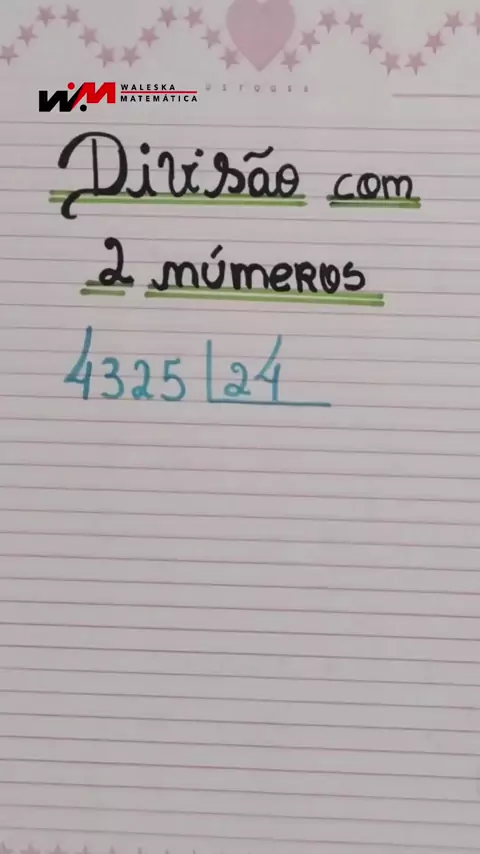 WM WALESKA
MATEMÁTICA
Divisão com
2 números
4325 24